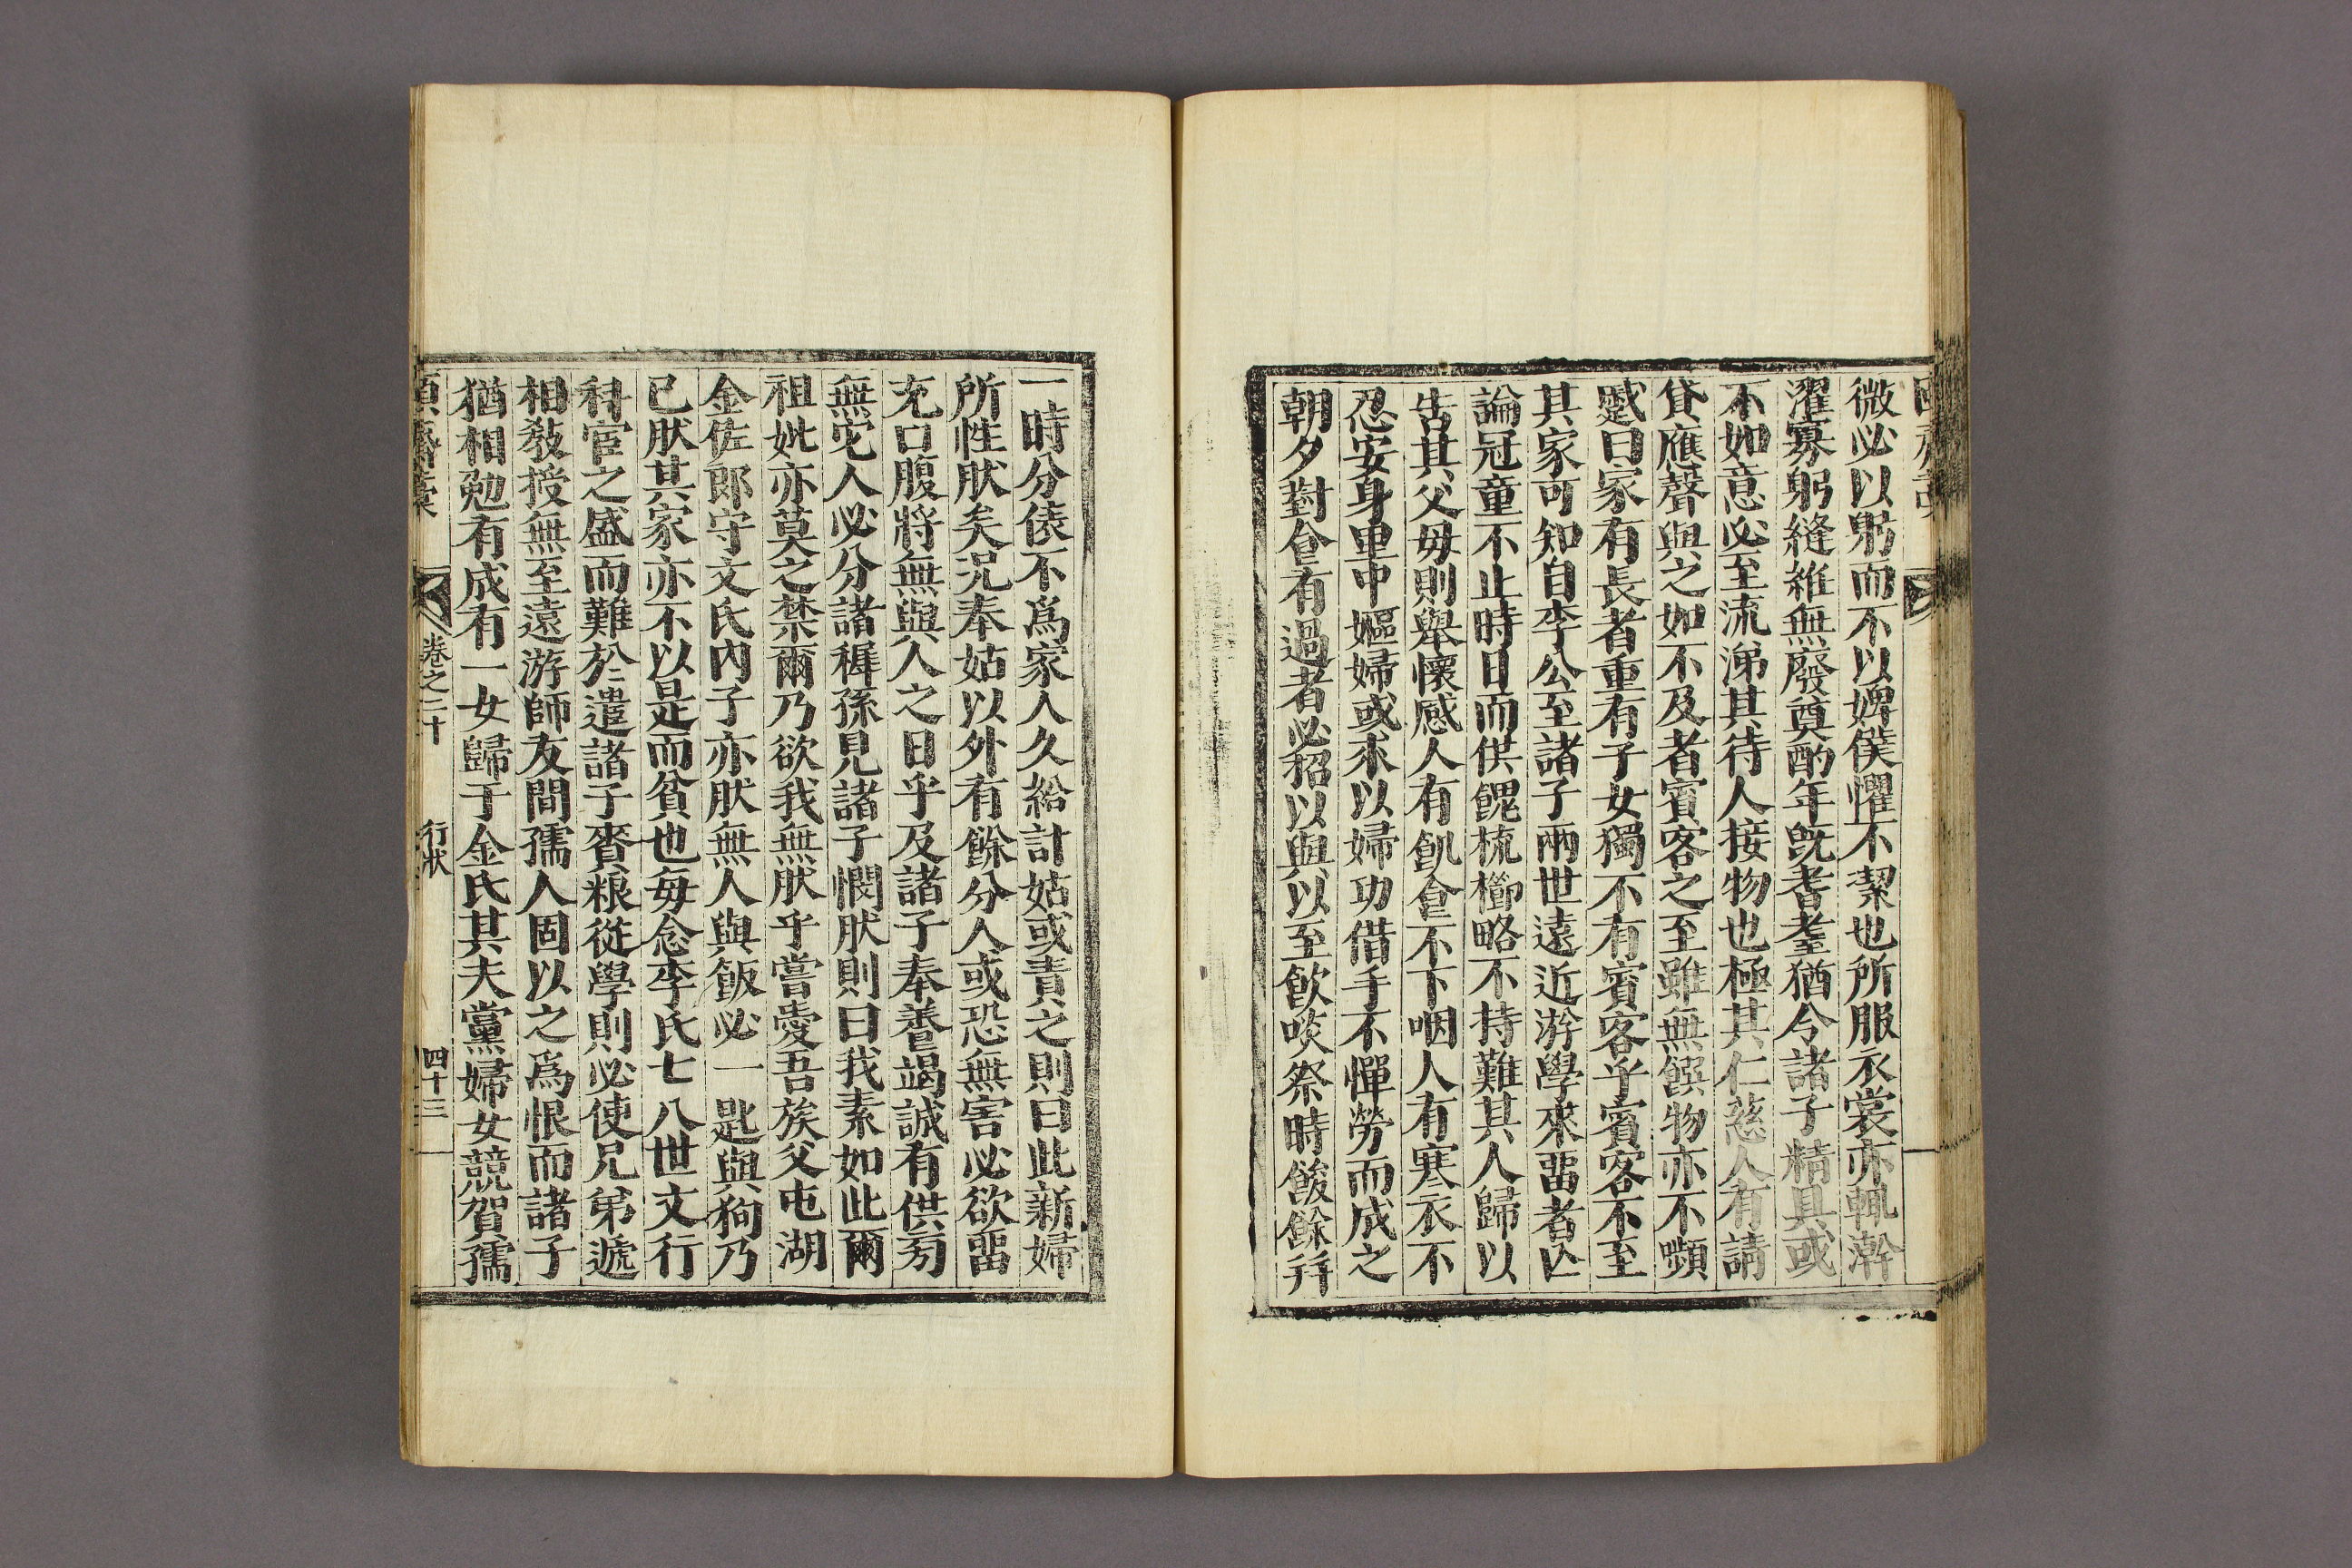 微必以躬而不以婢僕懼不潔也所服衣裳亦輒澣
濯寡躬縫維無廢奠酌年旣耆耋猶令諸子精具或
不如意必至流涕其待人接物也極其仁慈人有請
貸應聲與之如不及者賓客之至雖無饌物亦不嚬
蹙曰家有長者重有子女獨不有賓客乎賓客不至
其家可知自李公至諸子兩世遠近游學來畱者亾
論冠童不止時日而供餽梳櫛略不持難其人歸以
告其父毋則舉懷感人有飢食不下咽人有寒衣不
忍安身里中嫗婦或求以婦功借手不憚勞而成之
朝夕對食有過者必招以與以至飮啖祭時餕餘幷
一時分俵不爲家人久給計姑或責之則曰此新婦
所性肰矣兄奉姑以外有餘分人或恐無害必欲畱
充口腹將無與人之日乎及諸子奉養竭誠有供刱
無宅人必分諸穉孫見諸子憫肰則曰我素如此爾
祖妣亦莫之禁爾乃欲我無肰乎嘗憂吾族父屯湖
金佐郎守文氏內子亦肰無人與飯必一匙與狗乃
已肰其家亦不以是而貧也每念李氏七八世文行
科宦之盛而難於遣諸子賚粮從學則必使兄弟遞
相敎授無至遠游師友間孺人固以之爲恨而諸子
猶相勉有成有一女歸于金氏其夫黨婦女競賀孺
卷之二十
行狀
四十三